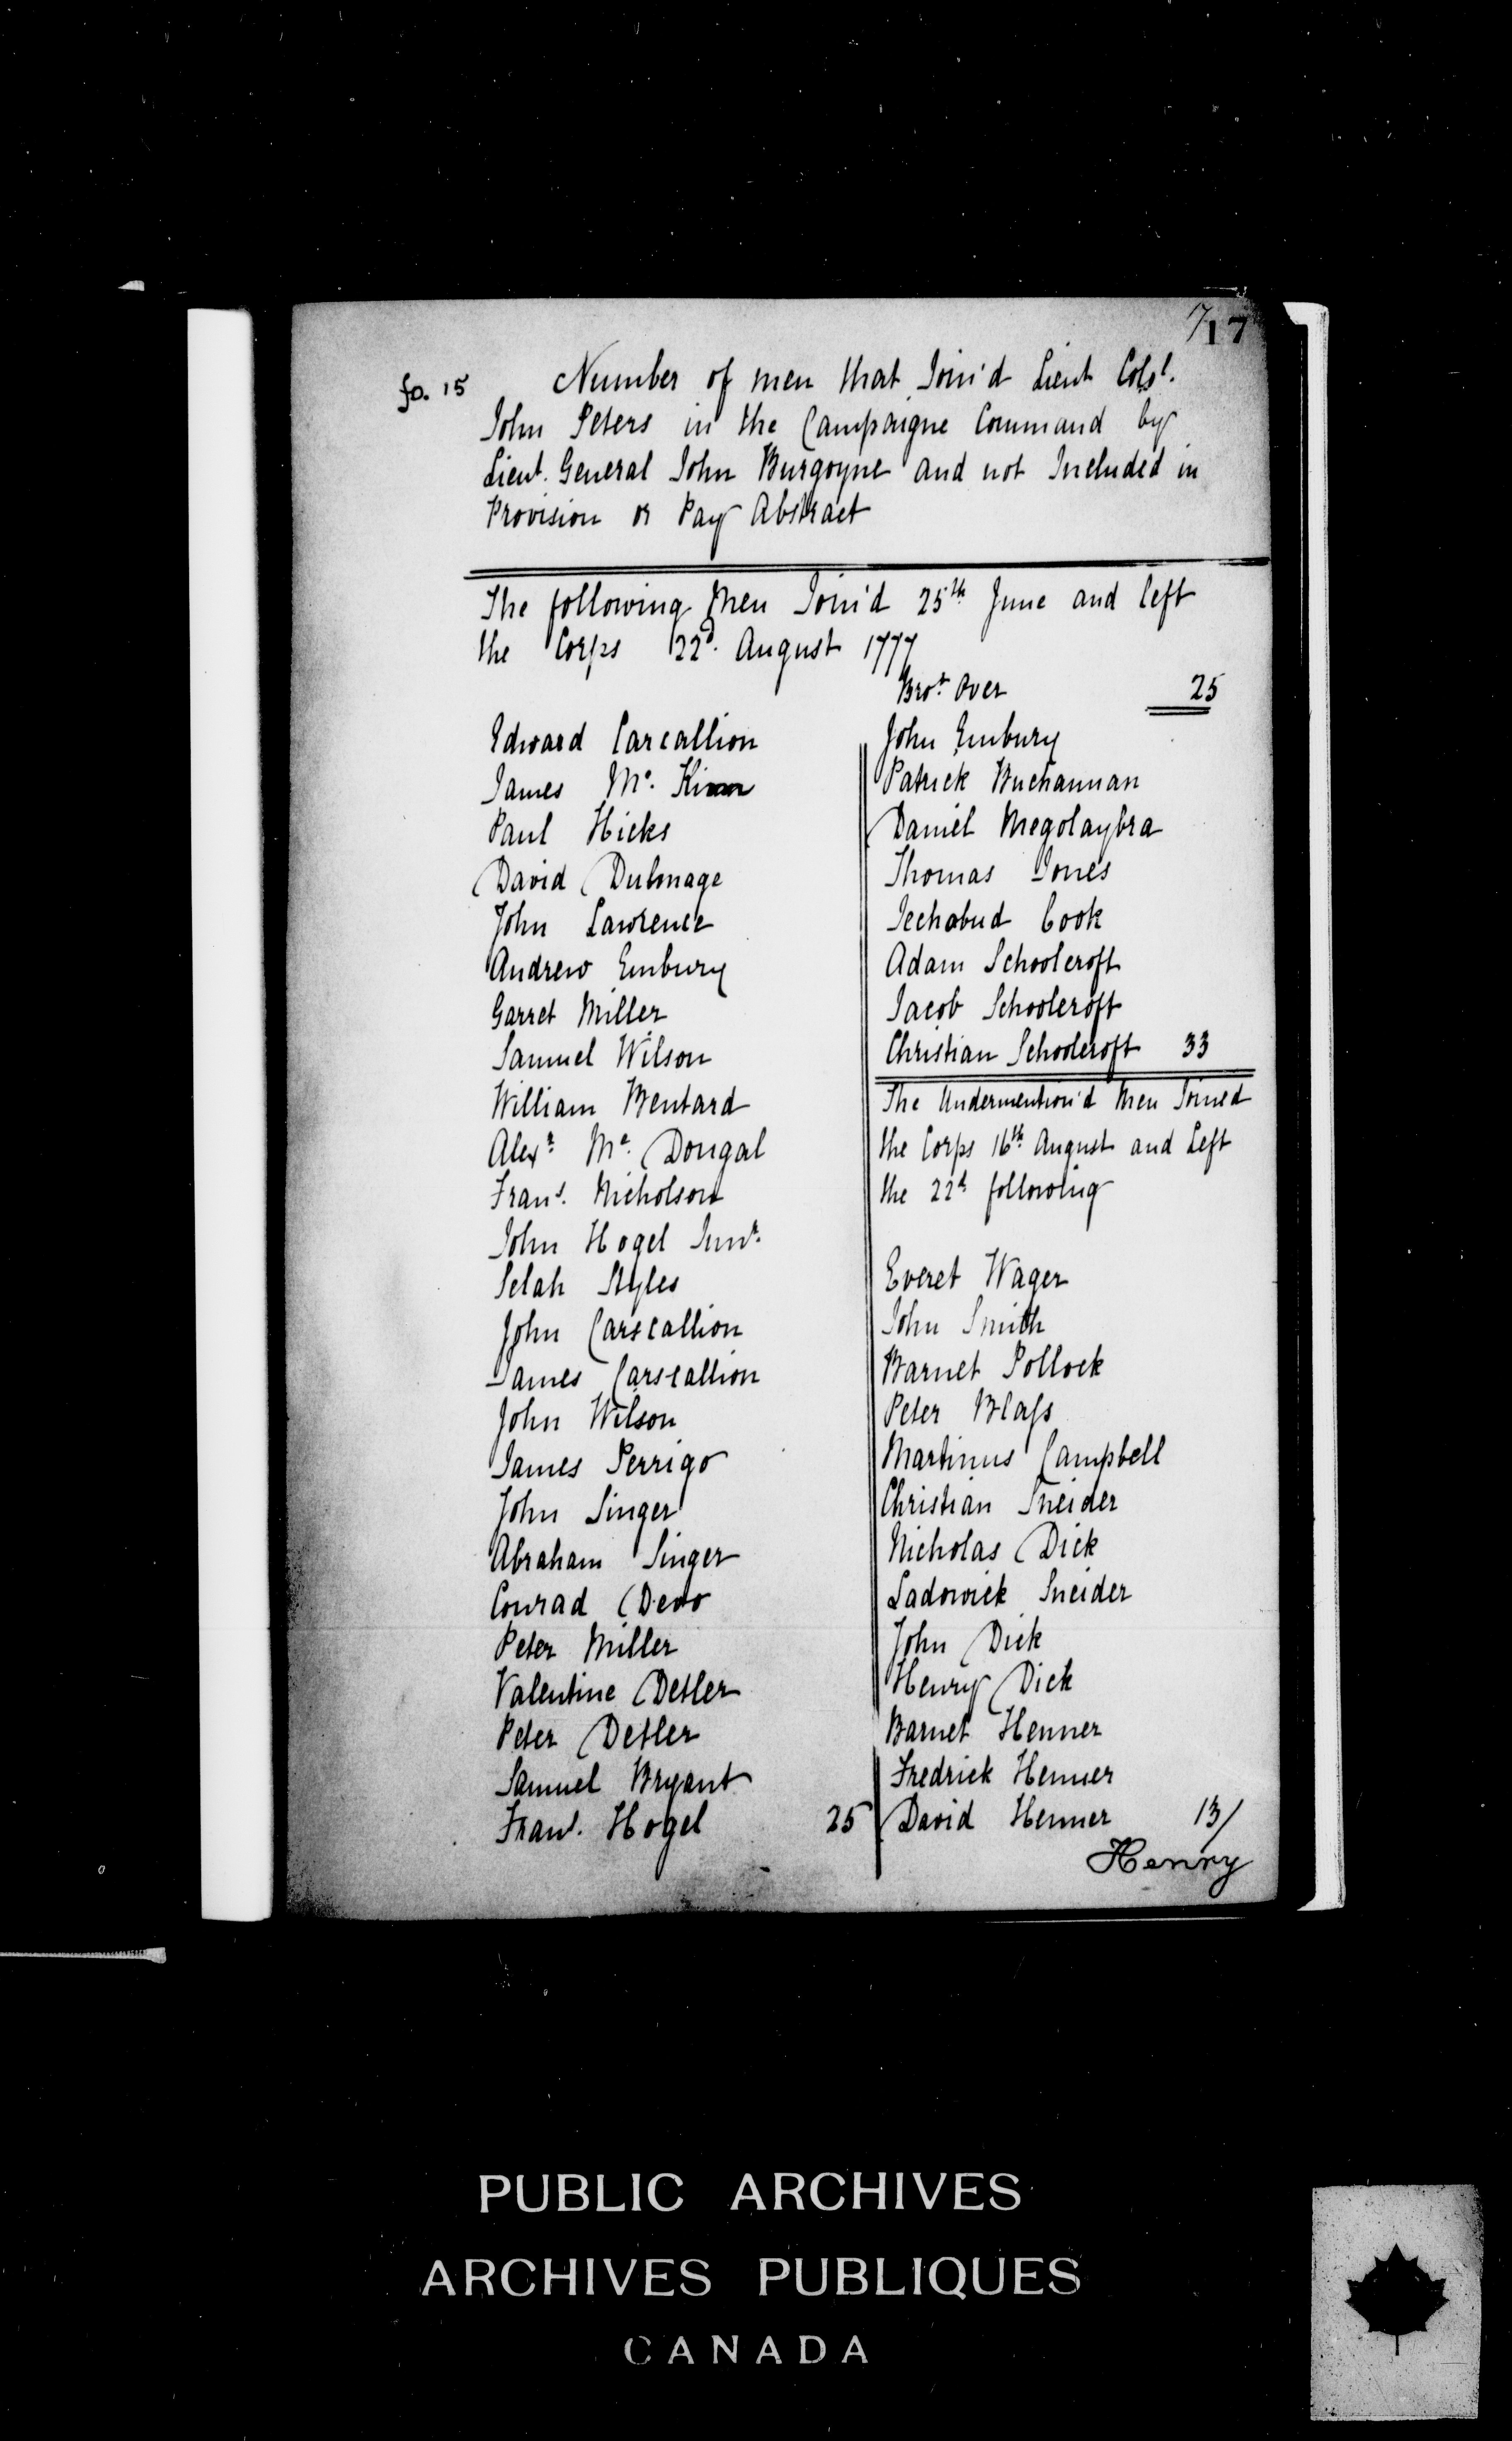 717
fo. 15
Number of men that Join'd Lieut Colol.
John Peters in the Campaigne Command by
Lieut. General John Burgoyne and not Included in
Provision or Pay Abstract
The following Men Join'd 25th June and left
the Corps 22d. August 1777
Edward Carcallion
James Mc. Kim
Paul Hicks
David Dulmage
John Lawrence
Andrew Embury
Garret Miller
Samuel Wilson
William Bentard
Alexr. Mc. Dougal
Frans. Nicholson
John Hogel Junr.
Selah Styles
John Carscallion
James Carscallion
John Wilson
James Perrigo
John Singer
Abraham Singer
Conrad Devo
Peter Miller
Valentine Detler
Peter Detler
Samuel Bryant
Frans. Hogel 25
Brot. Over 25
John Embury
Patrick Buchannan
Daniel Megolaybra
Thomas Jones
Iechabud Cook
Adam Schoolcroft
Jacob Schoolcroft
Christian Schoolcroft 33
The Undermention'd Men Joined
the Corps 16th August and Left
the 22d following
Everet Wager
John Smith
Barnet Pollock
Peter Blass
Martinus Campbell
Christian Sneider
Nicholas Dick
Ladowick Sneider
John Dick
Henry Dick
Barnet Henner
Fredrick Henner
David Henner 13/
Henry
PUBLIC ARCHIVES
ARCHIVES PUBLIQUES
CANADA